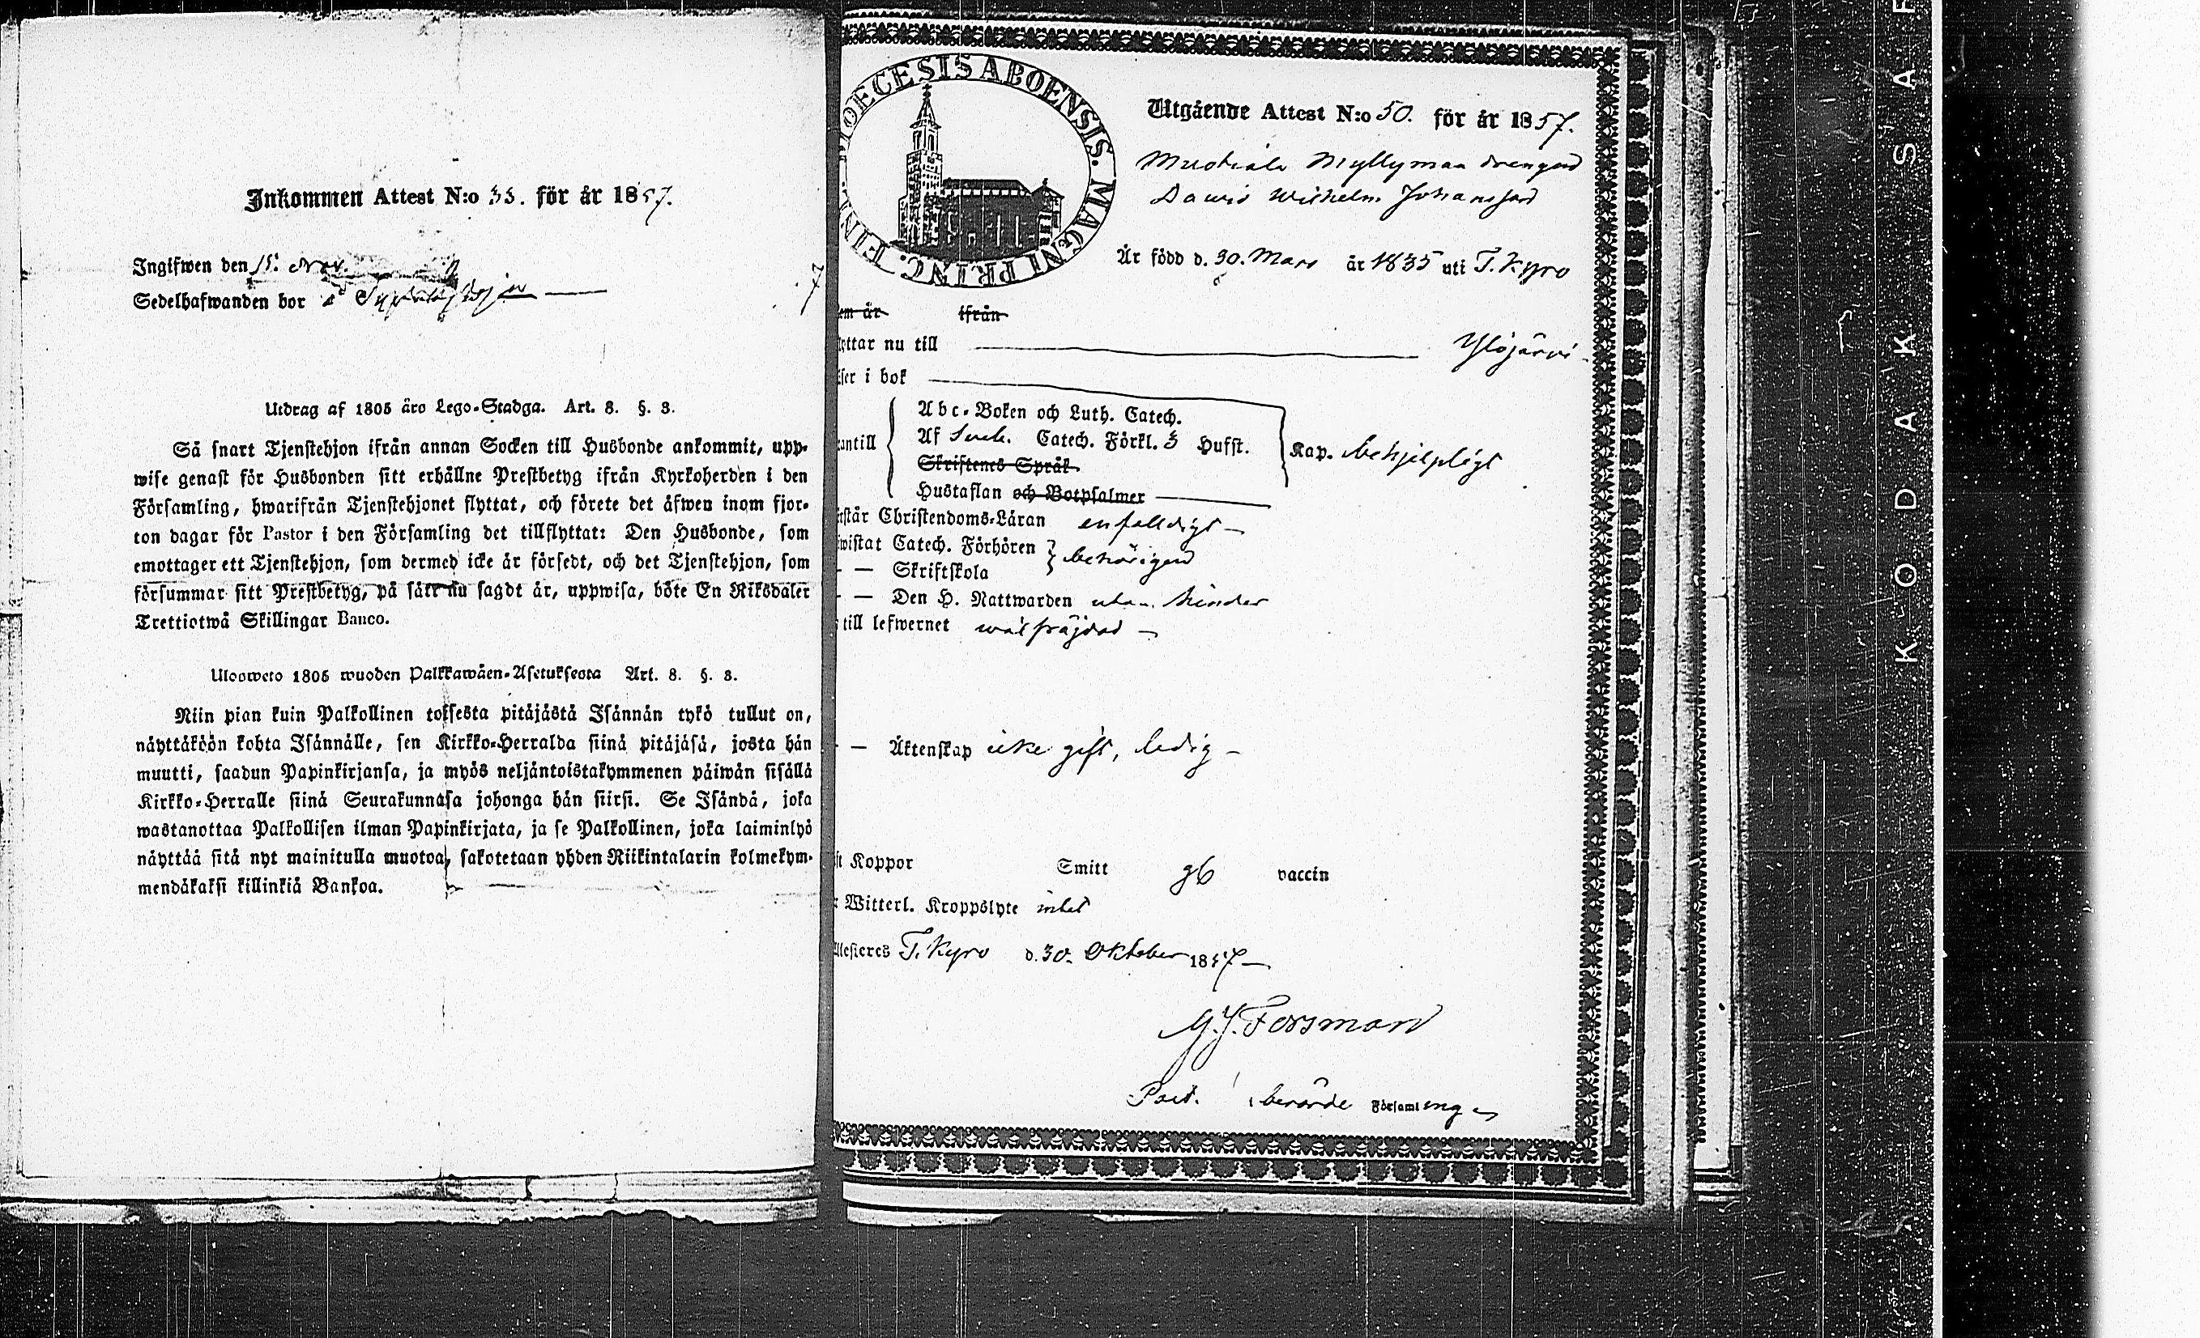 Inkommen Attest N:o 33. för år 1857.
Ingifwen den 15. Nov.
Sedelhafwanden bor
Utdrag af 1805 års Lego-Stadga. Art. 8. §. 3.
Så snart Tjenstehjon ifrån annan Socken till Husbonde ankommit, upp-
wise genast för Husbonden sitt erhållne Prestbetyg ifrån Kyrkoherden i den
Församling, hwarifrån Tjenstehjonet flyttat, och förete det äfwen inom fjor-
ton dagar för Pastor i den Församling det tillflyttat: Den Husbonde, som
emottager ett Tjenstehjon, som dermed icke är försedt, och det Tjenstehjon, som
försummar sitt Prestbetyg, på sätt nu sagdt är, uppwisa, böte En Riksdaler
Trettiotwå Skillingar Banco.
Ulosweto 1805 wuoden Palkkawäen-Asetuksesta Art. 8. §. 3.
Niin pian kuin Palkollinen toisesta pitäjästä Isännän tykö tullut on,
näyttäköön kohta Isännälle, sen Kirkko-Herralda siinä pitäjäsä, josta hän
muutti, saadun Papinkirjansa, ja myös neljäntoistakymmenen päiwän sisällä
Kirkko-Herralle siinä Seurakunnasa johonga hän siirsi. Se Isändä, joka
wastanottaa Palkollisen ilman Papinkirjata, ja se Palkollinen, joka laiminlyö
näyttää sitä nyt mainitulla muotoa, sakotetaan yhden Riikintalarin kolmekym-
mendäkaksi killinkiä Bankoa.
DIOECESIS ABOENSIS. MAGNI PRINC. FINL.
Utgående Attest N:o 50. för år 1857.
Myllymaa drengen
David Wilhelm Johansson
Är född d. 30. Mars år 1835 uti T. Kyro
em år ifrån
yttar nu till Ylöjärvi
ser i bok
antill
Abc-Boken och Luth. Catech.
Af Catech. Förkl. 3 Hufst.
Skriftenes Språk
Hustaflan och Botpsalmer
Kap. behjelpligt
rstår Christendoms-Läran enfaldigt
wistat Catech. Förhören
— — Skriftskola
behörigen
— — Den H. Nattwarden utan hinder
till lefwernet wälfräjdad
— — Äktenskap icke gift, ledig
ft Koppor Smitt gb vaccin
r Witterl. Kroppslyte intet
llesteres T. Kyro d. 30. Oktober 1857
G. J. Forsman
Past. i berörde Församling
KODAK SAF